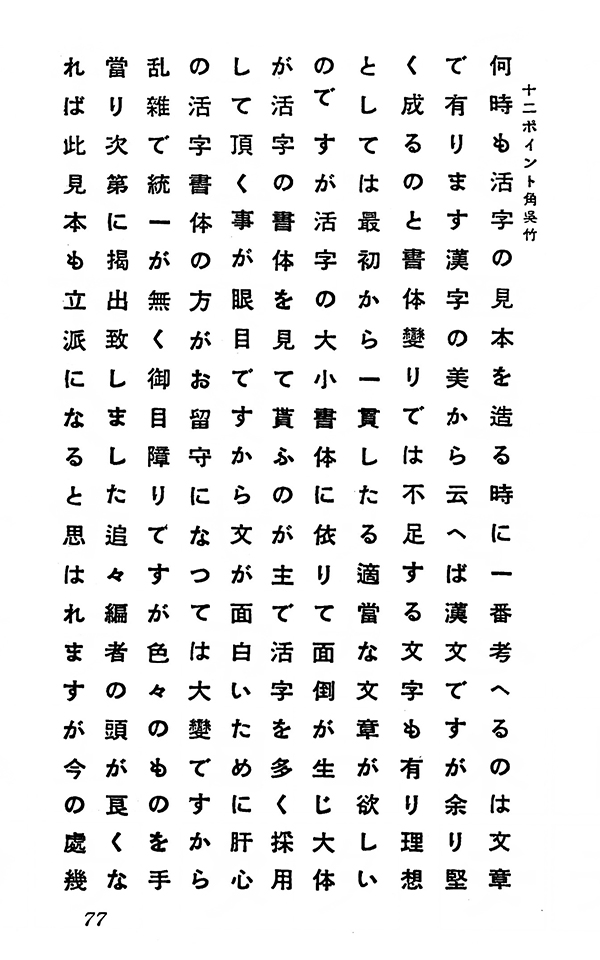 十二ポイント角呉竹
何時も活字の見本を造る時に一番考へるのは文章
で有ります漢字の美から云へば漢文ですが余り堅
く成るのと書体變りでは不足する文字も有り理想
としては最初から一貫したる適當な文章が欲しい
のですが活字の大小書体に依りて面倒が生じ大体
が活字の書体を見て貰ふのが主で活字を多く採用
して頂く事が眼目ですから文が面白いために肝心
の活字書体の方がお留守になつては大變ですから
乱雜で統一が無く御目障りですが色々のものを手
當り次第に揭出致しました追々編者の頭が良くな
れば此見本も立派になると思はれますが今の處幾
77